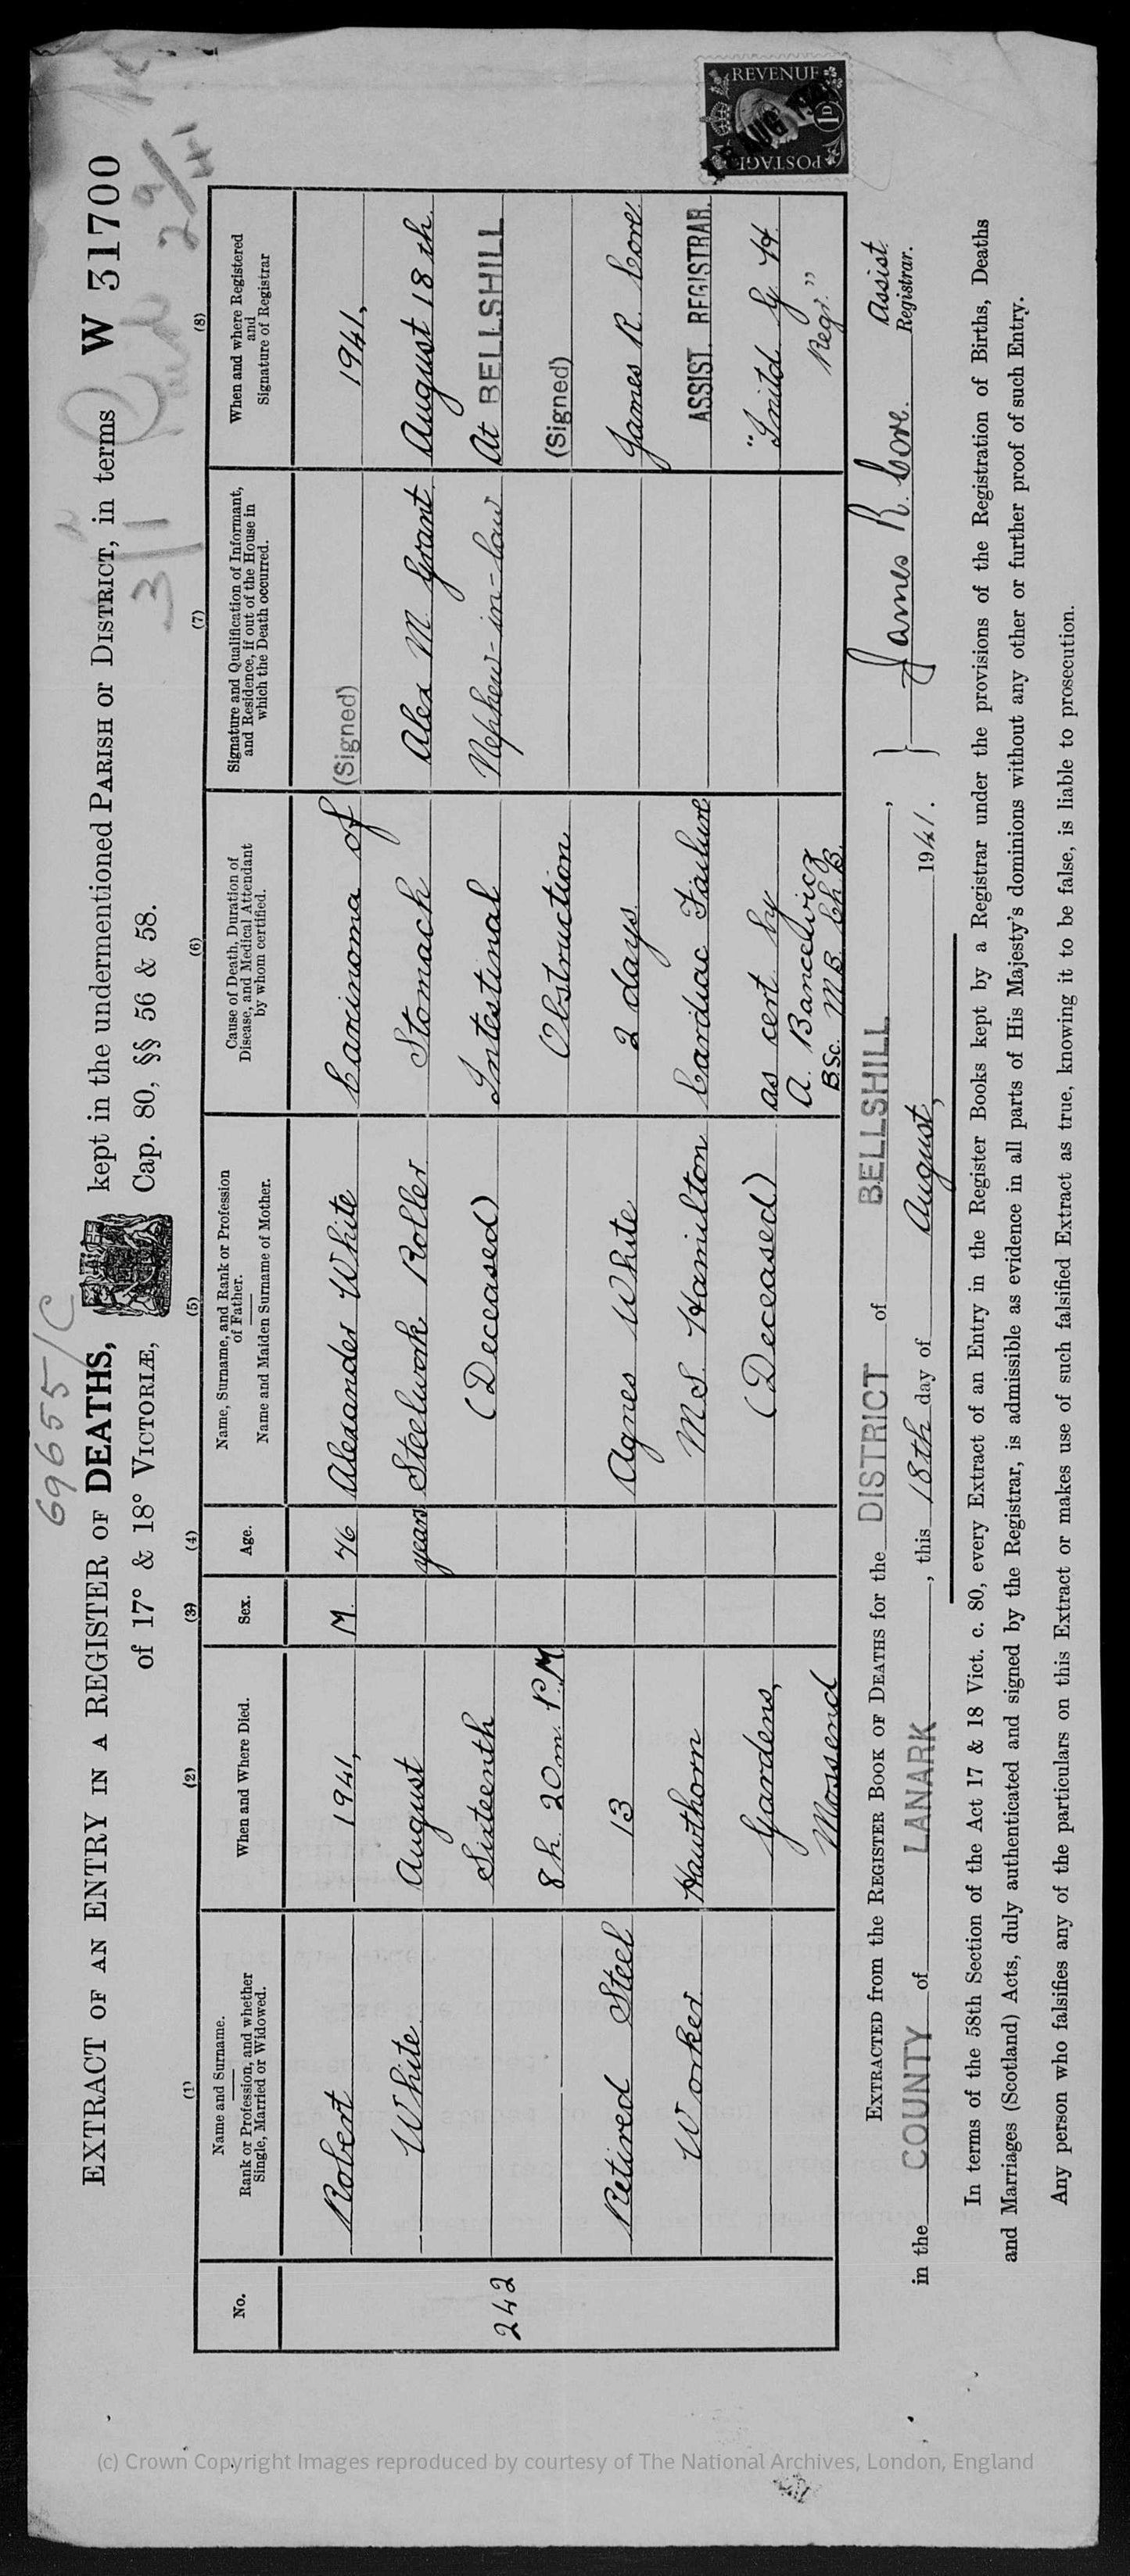 69655/C
EXTRACT OF AN ENTRY IN A REGISTER OF DEATHS, kept in the undermentioned PARISH OR DISTRICT, in terms
W 31700
of 17° & 18° VICTORIÆ, Cap. 80, §§ 56 & 58.
(1) (2) (3) (4) (5) (6) (7) (8)
No.
Name and Surname.
Rank or Profession, and whether
Single, Married or Widowed.
When and Where Died.
Sex.
Age.
Name, Surname, and Rank or Profession
of Father.
Name and Maiden Surname of Mother.
Cause of Death, Duration of
Disease, and Medical Attendant
by whom certified.
Signature and Qualification of Informant,
and Residence, if out of the House in
which the Death occurred.
When and where Registered
and
Signature of Registrar
242
Robert
White
Retired Steel
Worker
1941,
August
Sixteenth
8h. 20m. P.M
13
Hawthorn
Gardens,
Mossend
M.
76
years
Alexander White
Steelwork Roller
(Deceased)
Agnes White
M.S. Hamilton
(Deceased)
Carcinoma of
Stomach
Intestinal
Obstruction
2 days.
Cardiac Failure
as cert by
A. Bancewicz
B.Sc. M.B. Ch.B.
(Signed)
Alex M. Grant
Nephew-in-law
1941,
August 18th
At BELLSHILL
(Signed)
James R. Core.
ASSIST. REGISTRAR.
Regr."
POSTAGE REVENUE
1D
EXTRACTED from the REGISTER BOOK OF DEATHS for the DISTRICT of BELLSHILL,
in the COUNTY of LANARK, this 18th day of August, 1941.
} James R. Core. Assist. Registrar.
In terms of the 58th Section of the Act 17 & 18 Vict. c. 80, every Extract of an Entry in the Register Books kept by a Registrar under the provisions of the Registration of Births, Deaths
and Marriages (Scotland) Acts, duly authenticated and signed by the Registrar, is admissible as evidence in all parts of His Majesty's dominions without any other or further proof of such Entry.
Any person who falsifies any of the particulars on this Extract or makes use of such falsified Extract as true, knowing it to be false, is liable to prosecution.
(c) Crown Copyright Images reproduced by courtesy of The National Archives, London, England